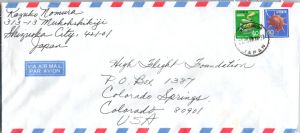 Kazuko Nomura
3-13-13 Mukoshikiji
Shizuoka City, 421-01
Japan
VIA AIR MAIL
PAR AVION
JAPAN
High Flight Foundation
P.O. Box 1387
Colorado Springs
Colorado 80901
USA